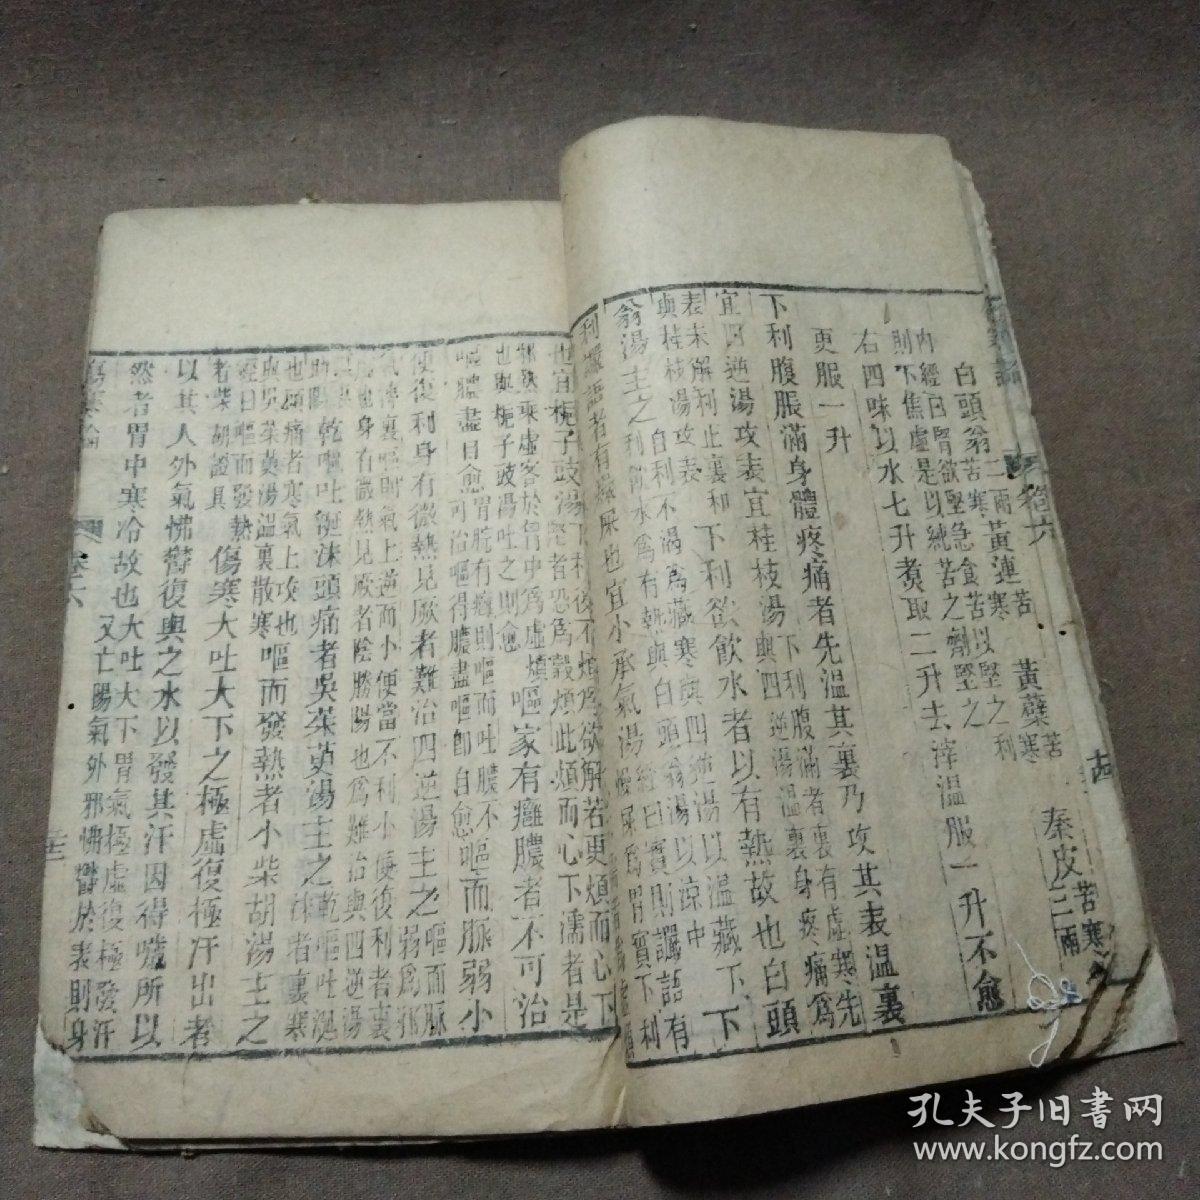 卷六
白頭翁二兩苦寒黃連苦寒 黃蘗苦寒 秦皮三兩苦寒
內經曰腎欲堅急食苦以堅之利
則下焦虛是以純苦之劑堅之
右四味以水七升煮取二升去滓溫服一升不愈
更服一升
下利腹脹滿身體疼痛者先溫其裏乃攻其表溫裏
宜四逆湯攻表宜桂枝湯下利腹滿者裏有虛寒先
與四逆湯溫裏身疼痛爲
表未解利止裏和
與桂枝湯攻表下利欲飲水者以有熱故也白頭
翁湯主之自利不渴爲藏寒與四逆湯以溫藏下
利飲水爲有熱與白頭翁湯以涼中下
利讝語者有燥屎也宜小承氣湯經曰實則讝語有
燥屎爲胃實下利
也宜梔子豉湯下利後不煩爲欲解若更煩而心下
濡者恐爲穀煩此煩而心下濡者是
邪熱乘虛客於胷中爲虛煩
也與梔子豉湯吐之則愈嘔家有癰膿者不可治
嘔膿盡自愈胃脘有癰則嘔而吐膿不
可治嘔得膿盡嘔卽自愈嘔而脈弱小
便復利身有微熱見厥者難治四逆湯主之嘔而脈
弱爲邪
氣傳裏嘔則氣上逆而小便當不利小便復利者裏
虛也身有微熱見厥者陰勝陽也爲難治與四逆湯
助陽乾嘔吐涎沫頭痛者吳茱萸湯主之乾嘔吐涎
沫者裏寒
也頭痛者寒氣上攻也
與吳茱萸湯溫裏散寒嘔而發熱者小柴胡湯主之
經曰嘔而發熱
者柴胡證具傷寒大吐大下之極虛復極汗出者
以其人外氣怫鬱復與之水以發其汗因得噦所以
然者胃中寒冷故也大吐大下胃氣極虛復極發汗
又亡陽氣外邪怫鬱於表則身
傷寒論 卷六
孔夫子旧书网
www.kongfz.com